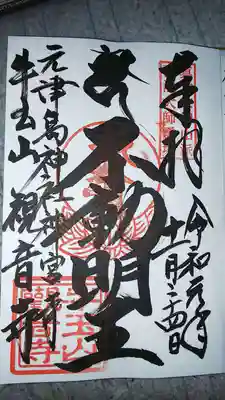 奉拝
令和元年
十一月二四日
不動明王
元津島神社神宮寺
牛玉山観音寺
牛玉山
観音寺